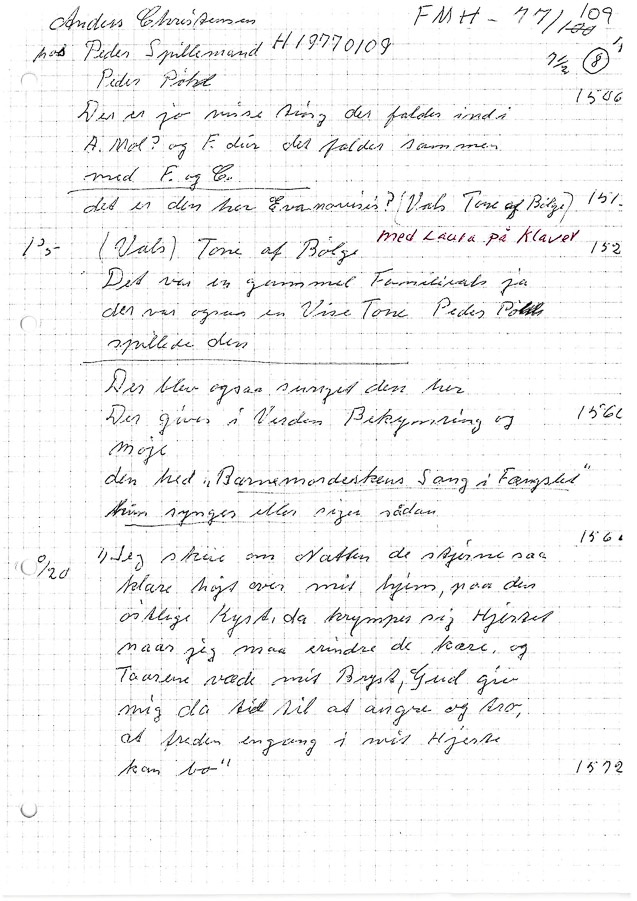 Anders Christensen FMH - 77/109
hos Peder Spillemand H19770109 7 1/2 8
Peder Pøhl
Der er jo visse ting der falder ind i 1506
A. Mol? og F. dur det falder sammen
med F. og C.
det er den her Evamarisis? (Vals Tone af Bølge) 151
(Vals) Tone af Bølge med Laura på Klaver 152
Det var en gammel Familievals ja
der var ogsaa en Vise Tone Peder
spillede den
Der blev ogsaa sunget den her
Der gives i Verden Bekymring og 156
møje
den hed "Barnemorderskens Sang i Fængslet"
hun synger eller siger sådan
156
0/20 1) Jeg skue om Natten de stjerne saa
klare højt over mit hjem, paa den
østlige Kyst, da krymper sig Hjertet
naar jeg maa erindre de kære, og
Taarene væde mit Bryst, Gud giv
mig da tid til at angre og tro,
at freden engang i mit Hjerte
kan bo" 1572